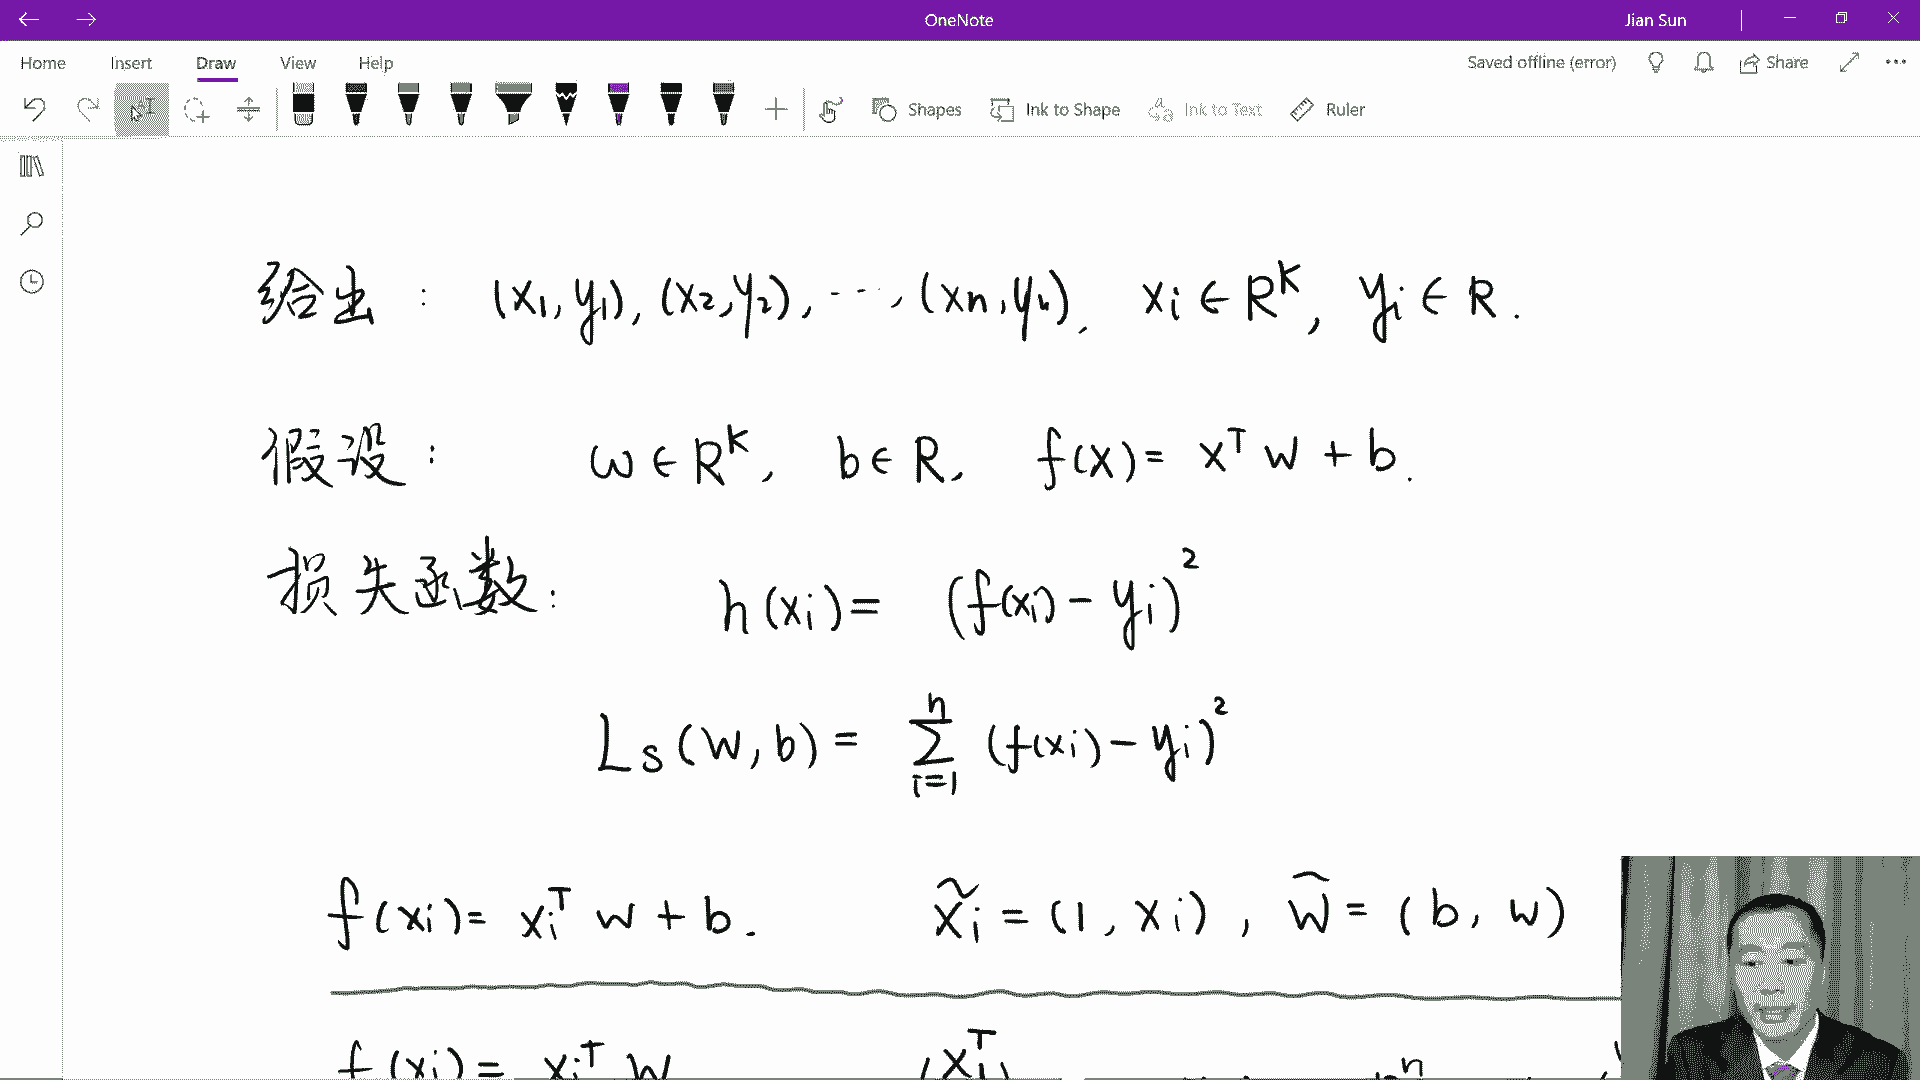 OneNote
Jian Sun
Home Insert Draw View Help
Saved offline (error)
Share
Shapes
Ink to Shape
Ink to Text
Ruler
给出 : (x₁, y₁), (x₂, y₂), ..., (xn, yn), xi ∈ R^K, yi ∈ R.
假设 : w ∈ R^K, b ∈ R, f(x) = x^T w + b.
损失函数 : h(xi) = (f(xi) - yi)²
Ls(w, b) = Σ_{i=1}^{n} (f(xi) - yi)²
f(xi) = xi^T w + b. x̃i = (1, xi), ŵ = (b, w)
f(xi) = xi^T w